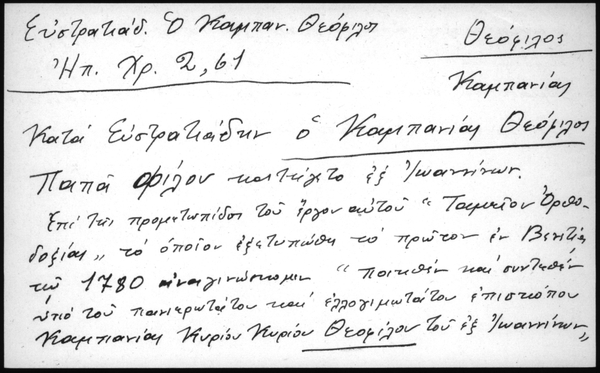 Εὐστρατιάδ. Ὁ Καμπαν. Θεόφιλος
Ἠπ. Χρ. 2, 61
Θεόφιλος
Καμπανίας
Κατά Εὐστρατιάδην ὁ Καμπανίας Θεόφιλος
Παπᾶ Φίλου κατήγετο ἐξ Ἰωαννίνων.
Ἐπί τῆς προμετωπίδος τοῦ ἔργου αὐτοῦ "Ταμεῖον Ὀρθο-
δοξίας" τό ὁποῖον ἐξετυπώθη τό πρῶτον ἐν Βενετίᾳ
τῷ 1780 ἀναγινώσκομεν "ποιηθέν καί συντεθέν
ὑπό τοῦ πανιερωτάτου καί ἐλλογιμωτάτου ἐπισκόπου
Καμπανίας Κυρίου Κυρίου Θεοφίλου τοῦ ἐξ Ἰωαννίνων"